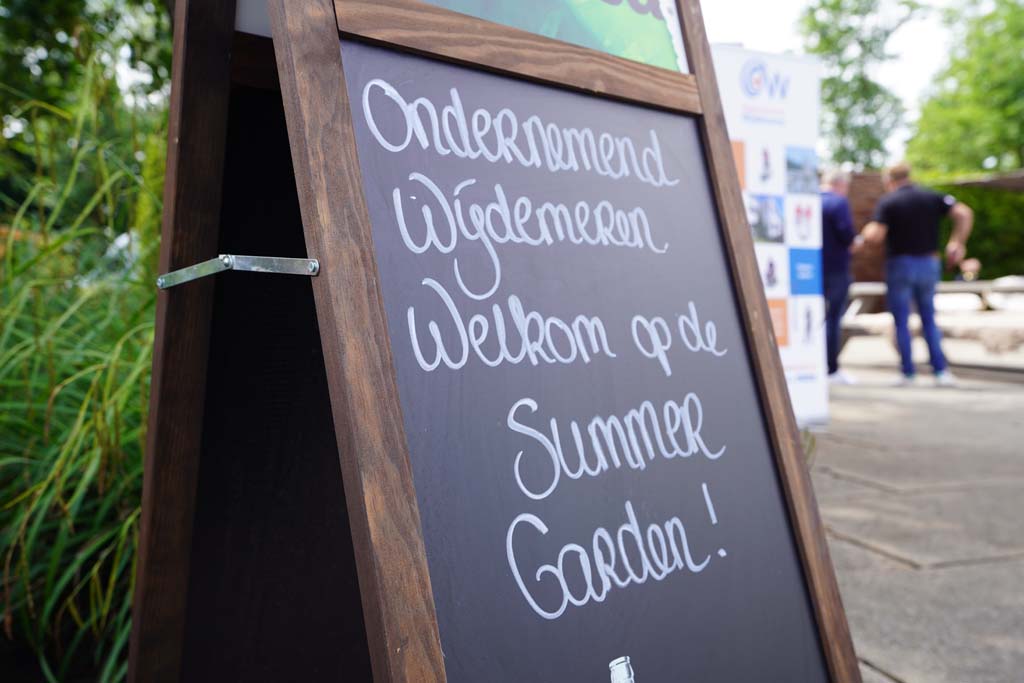 Ondernemend
Wijdemeren
Welkom op de
Summer
Garden!
OW